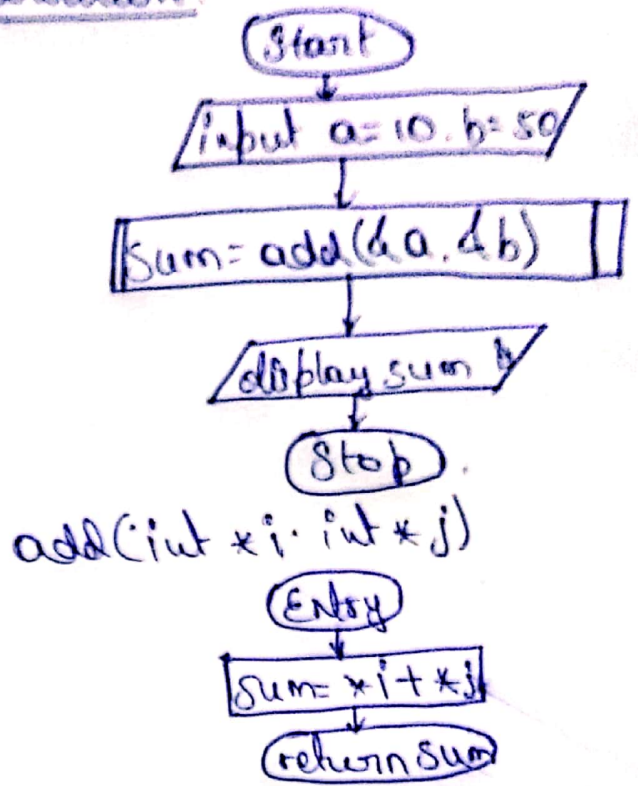 Start
input a=10, b=50
sum=add(&a,&b)
display sum
Stop
add(int *i, int *j)
Entry
sum=*i+*j
return sum